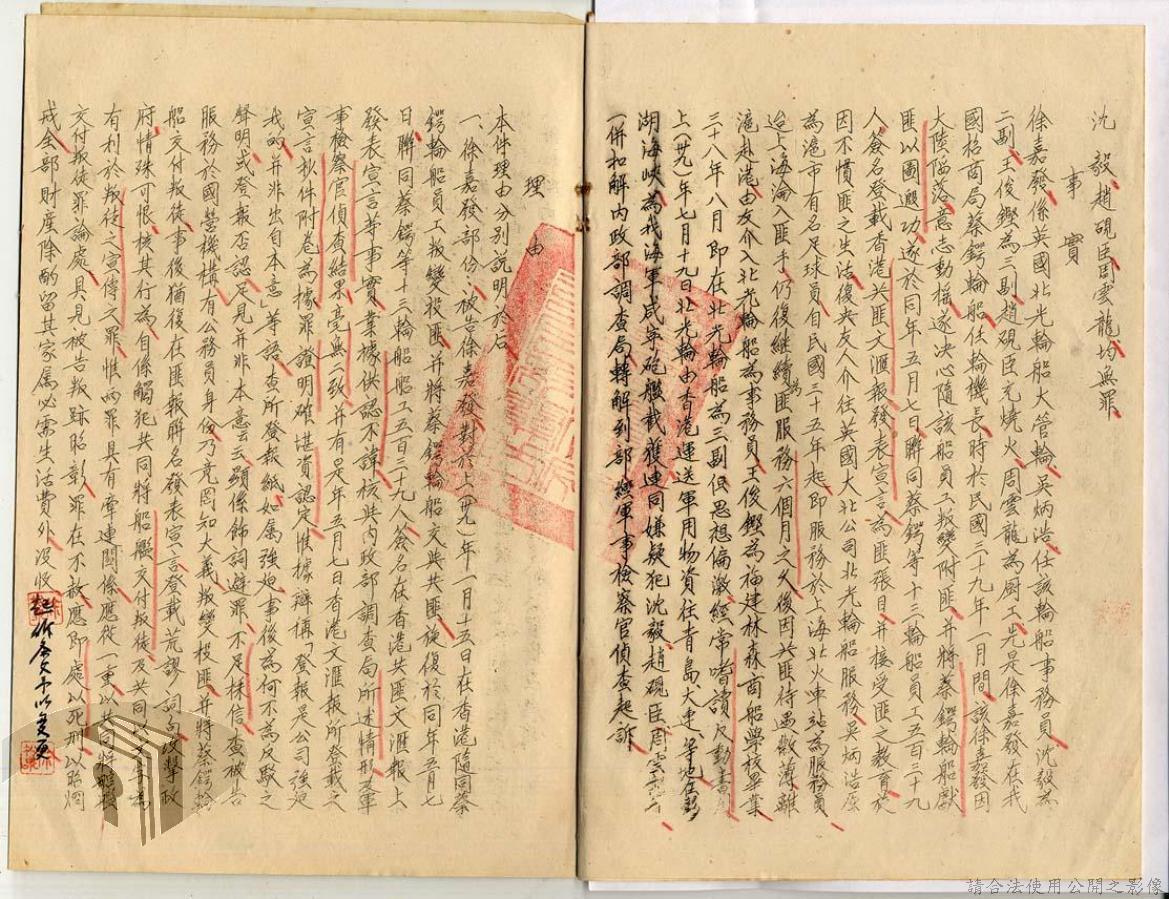 沈毅、趙硯臣周雲龍均無罪
事實
徐嘉發係英國北光輪船大管輪、吳炳浩任該輪船事務員、沈毅為
二副、王俊鏗為三副、趙硯臣充燒火、周雲龍為厨工、先是徐嘉發在我
國招商局蔡鍔輪船任輪機長、時於民國三十九年一月間、該徐嘉發因
大陸陷落、意志動搖、遂決心隨該船員工叛變附匪、並將蔡鍔輪船獻
匪以圖邀功、遂於同年五月七日、聯同蔡鍔等十三輪船員工五百三十九
人簽名登載香港共匪文滙報、發表宣言、為匪張目、并接受匪之教育、後
因不慣匪之生活、復央友人介往英國大北公司北光輪船服務、吳炳浩原
為滬市有名足球員、自民國三十五年起、即服務於上海北火車站為服務員
迨上海淪入匪手、仍復繼續為匪服務六個月之久、後因共匪待遇微薄、離
滬赴港、由友介入北光輪船為事務員、王俊鏗為福建林森商船學校畢業
三十八年八月即在北光輪船為三副、但思想偏激、經常嗜讀反動書
上(卅九)年七月十九日北光輪由香港運送軍用物資往青島大連等地在
湖海峽、為我海軍咸寧砲艦截獲、連同嫌疑犯沈毅趙硯臣、周雲龍等
一併扣解內政部調查局轉解到部、經軍事檢察官偵查起訴
理由
本件理由分別說明於右
一、徐嘉發部份：被告徐嘉發、對於上(卅九)年一月十五日在香港隨同蔡
鍔輪船員工叛變投匪、并將蔡鍔輪船交與共匪、旋復於同年五月七
日、聯同蔡鍔等十三輪船船工五百三十九人簽名在香港共匪文滙報上
發表宣言等事實、業據供認不諱、核與內政部調查局所述情形、及軍
事檢察官偵查結果、毫無二致、并有是年五月七日香港文滙報所登載之
宣言抄件附卷為據、罪證明確、堪資認定、惟據辯稱「登報是公司強迫
我的、并非出自本意」等語、查所登報紙、如屬強迫、事後為何不為反駁之
聲明、或登報否認、足見并非本意云云、顯係飾詞避罪、不足採信、查被告
服務於國營機構、有公務員身份、乃竟罔知大義、叛變投匪、并將蔡鍔輪
船交付叛徒、事後猶復在匪報聯名發表宣言、登載荒謬詞句、攻擊政
府、情殊可恨、核其行為、自係觸犯共同將船艦交付叛徒、及共同以文字為
有利於叛徒之宣傳之罪、惟兩罪具有牽連關係、應從一重、以共同將船艦
交付叛徒罪論處、具見被告叛跡昭彰、罪在不赦、應即處以死刑、以昭炯
戒、全部財產除酌留其家屬必需生活費外沒收
請合法使用公開之影像